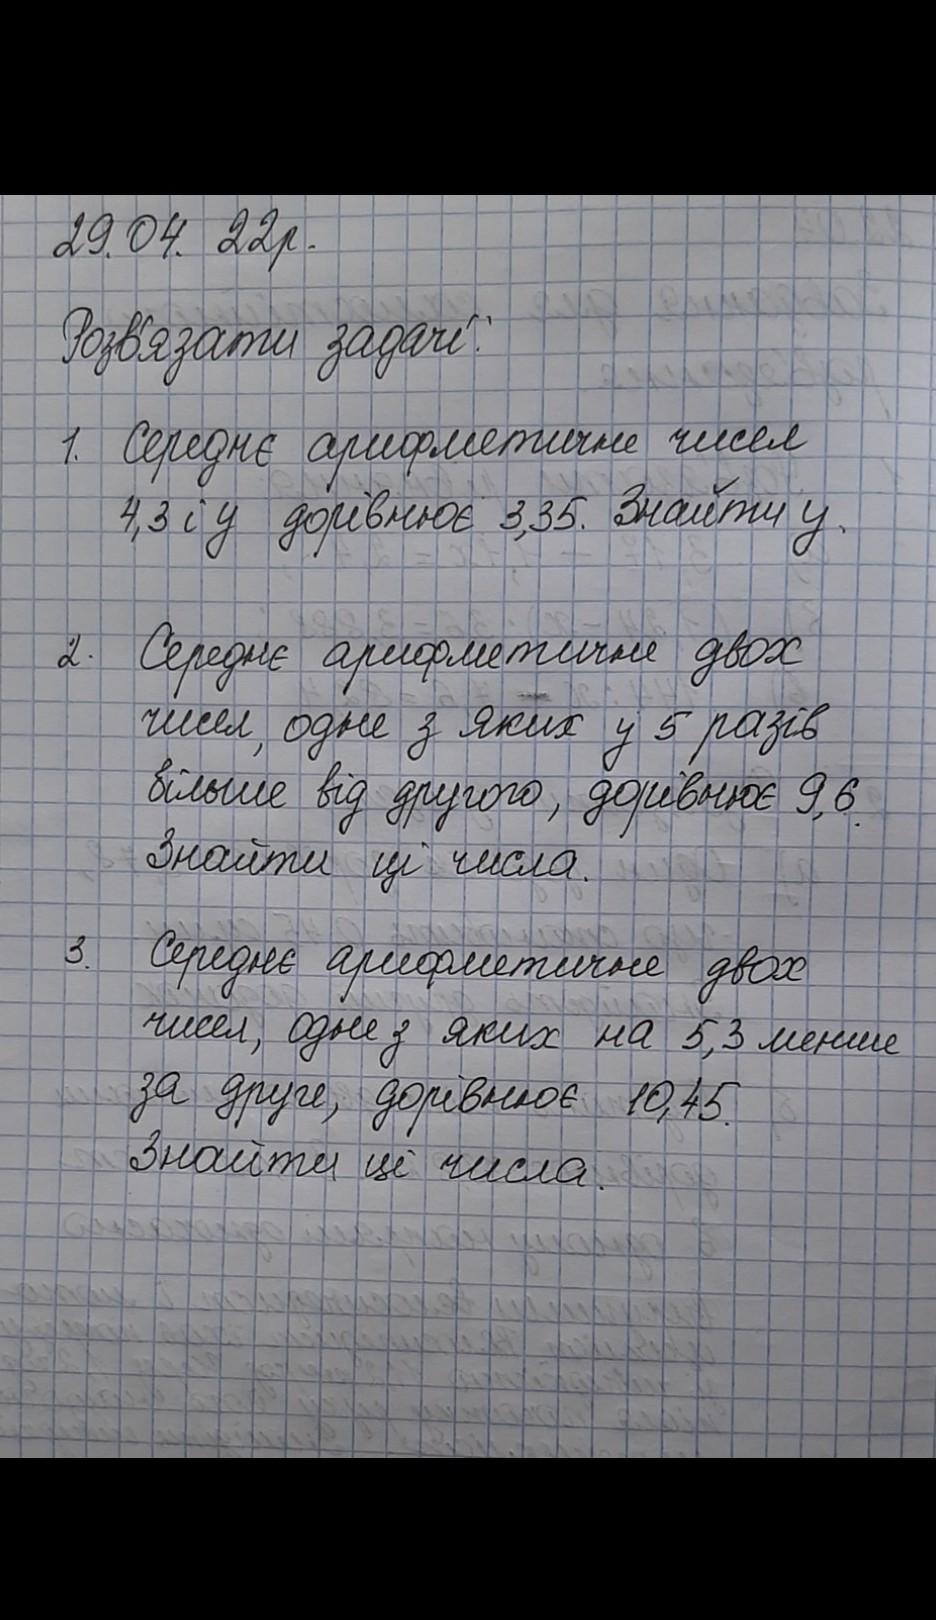 29.04. 22р.
Розв'язати задачі:
1. Середнє арифметичне чисел
4,3 і у дорівнює 3,35. Знайти у.
2. Середнє арифметичне двох
чисел, одне з яких у 5 разів
більше від другого, дорівнює 9,6.
Знайти ці числа.
3. Середнє арифметичне двох
чисел, одне з яких на 5,3 менше
за друге, дорівнює 10,45.
Знайти ці числа.